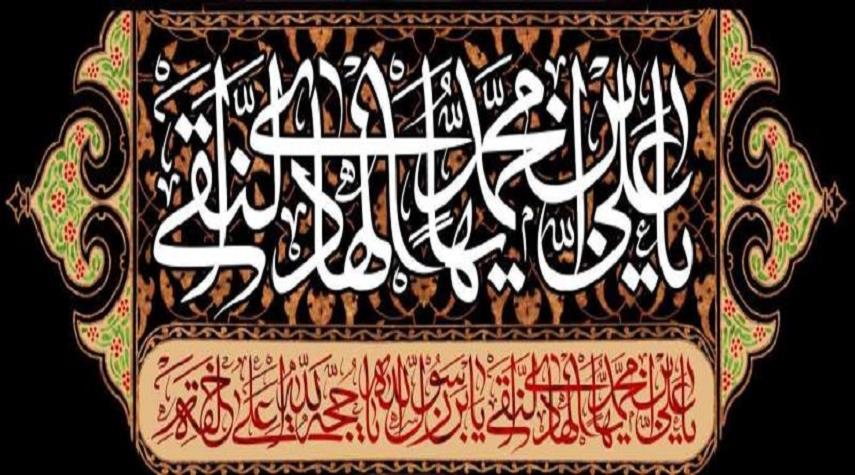 يا علي بن محمد أيها الهادي النقي
يا علي بن محمد أيها الهادي النقي يا بن رسول الله يا حجة الله على خلقه